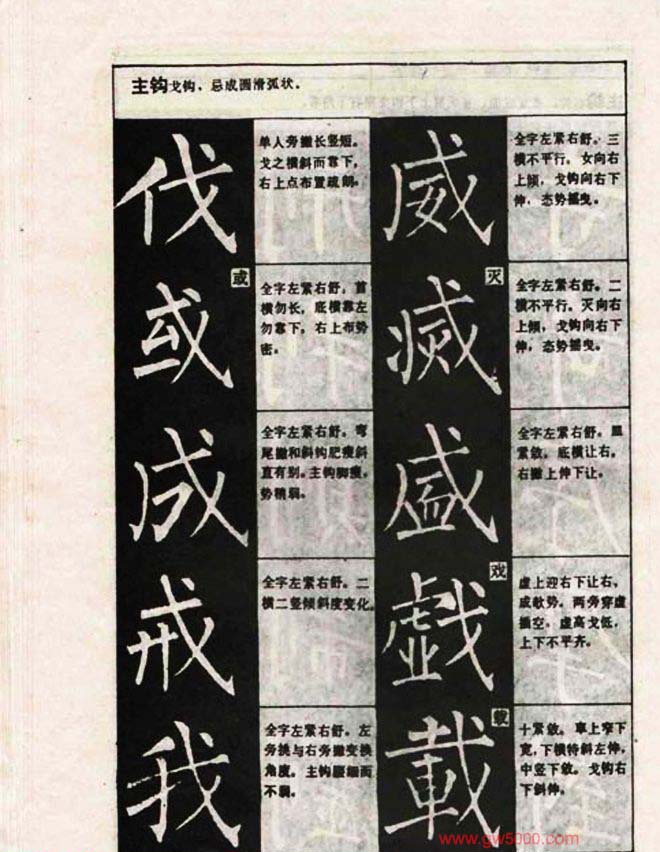 主钩戈钩，忌成圆滑弧状。
伐
单人旁撇长竖短。
戈之横斜而靠下，
右上点布置疏朗。
或
或
全字左紧右舒，首
横勿长，底横靠左
勿靠下，右上布势
密。
成
全字左紧右舒。弯
尾撇和斜钩肥瘦斜
直有别。主钩脚瘦，
势稍弱。
戒
全字左紧右舒。二
横二竖倾斜度变化。
我
全字左紧右舒。左
旁挑与右旁撇变换
角度。主钩腰细而
不弱。
威
全字左紧右舒。三
横不平行，女向右
上倾，戈钩向右下
伸，态势摇曳。
灭
滅
全字左紧右舒。二
横不平行。灭向右
上倾，戈钩向右下
伸，态势摇曳。
盛
全字左紧右舒。皿
紧敛。底横让右。
右撇上伸下让。
戏
戯
虚上迎右下让右，
成欹势。两旁穿虚
插空，虚高戈低，
上下不平齐。
载
載
十紧敛。車上窄下
宽，下横特斜左伸，
中竖下敛。戈钩右
下斜伸。
www.gw5000.com